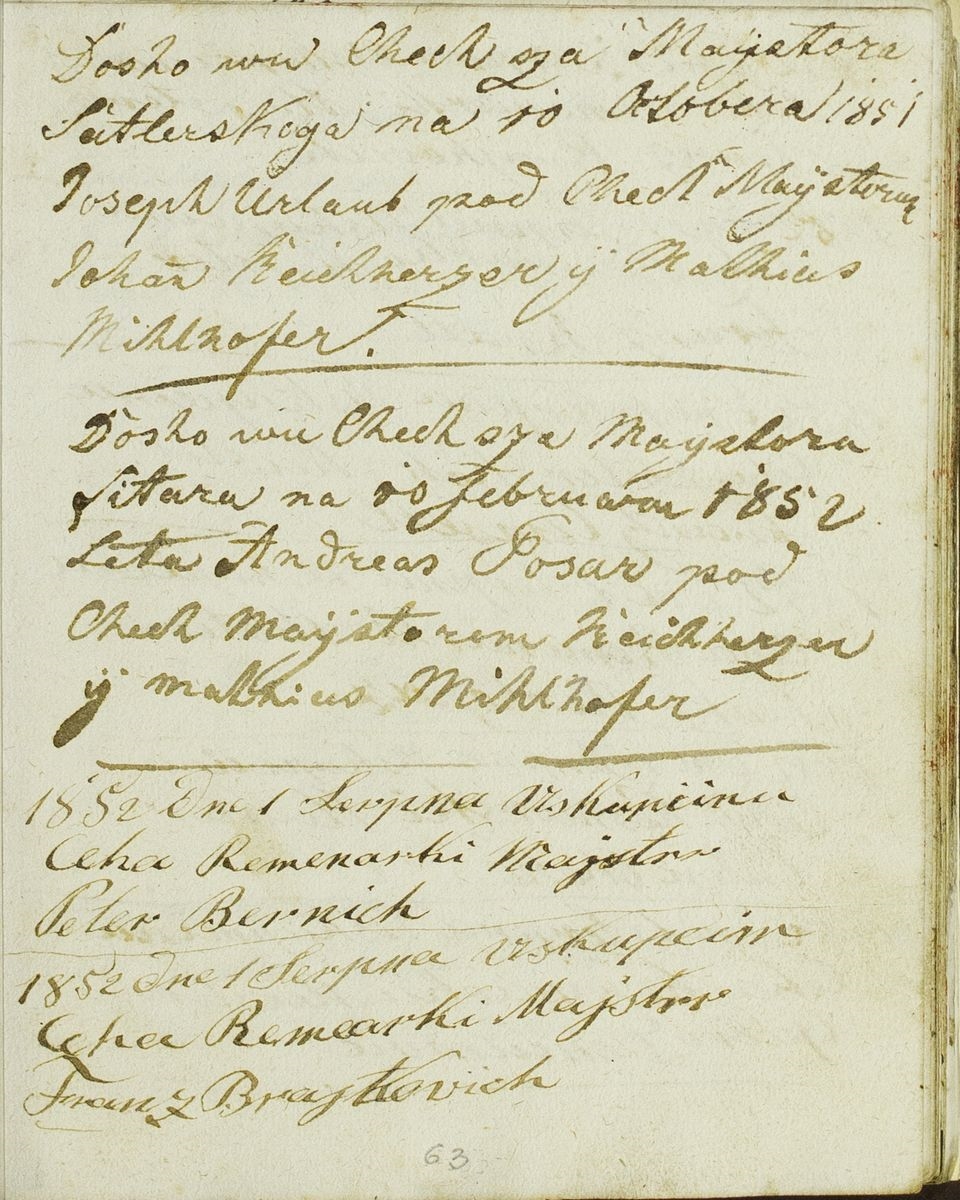 Dosho wu Chech sza Maÿstora
Satlerskoga na 10 Octobera 1851
Joseph Urlaub pod Chech Maÿstorum
Johan Reichherzer ÿ Mathius
Mihlhofer.
Dosho wu Chech sza Maÿstora
Sitara na 10 februara 1852
Leta Andreas Posar pod
Chech Maÿstorem Reichherzer
ÿ mathius Mihlhofer
1852 Dne 1 Serpna Uskupcinu
Ceha Remenarki Majstrr
Peter Bernich
1852 dne 1 Serpna Uskupcim
Ceha Remearki Majstrr
Franz Brajkovich
63